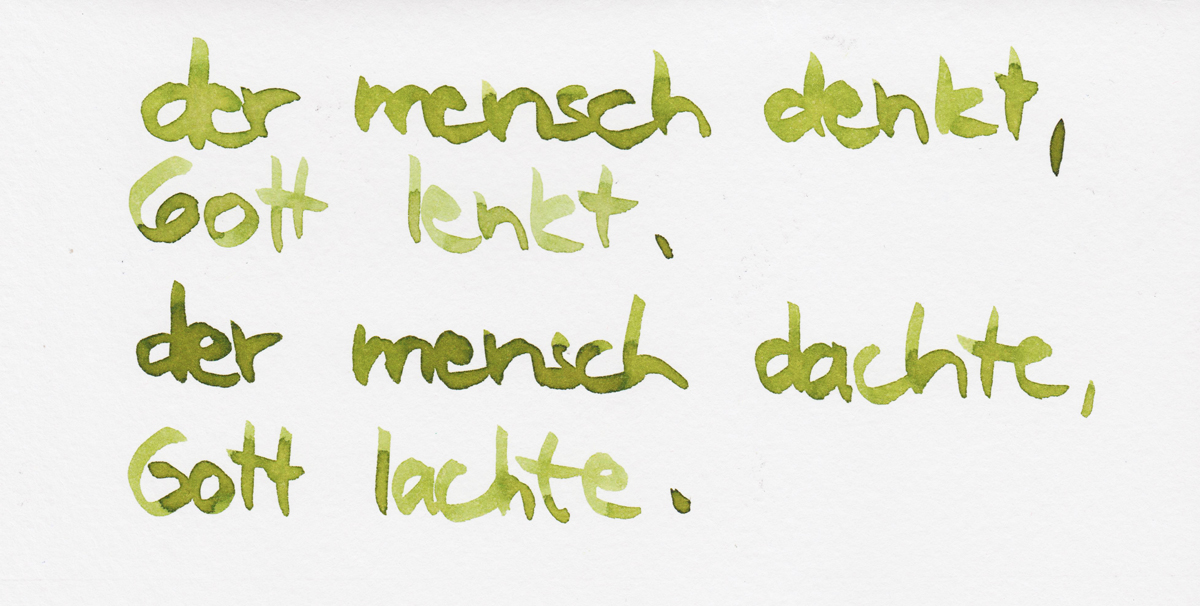 der mensch denkt,
Gott lenkt.
der mensch dachte,
Gott lachte.